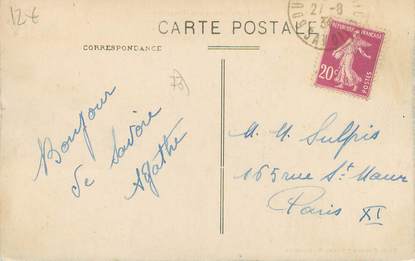 12€
CARTE POSTALE
CORRESPONDANCE
27-8
RÉPUBLIQUE FRANÇAISE
20c
POSTES
Bonjour
de Savoie
Agathe
M. M. Sulpis
165 rue St Maur
Paris XI